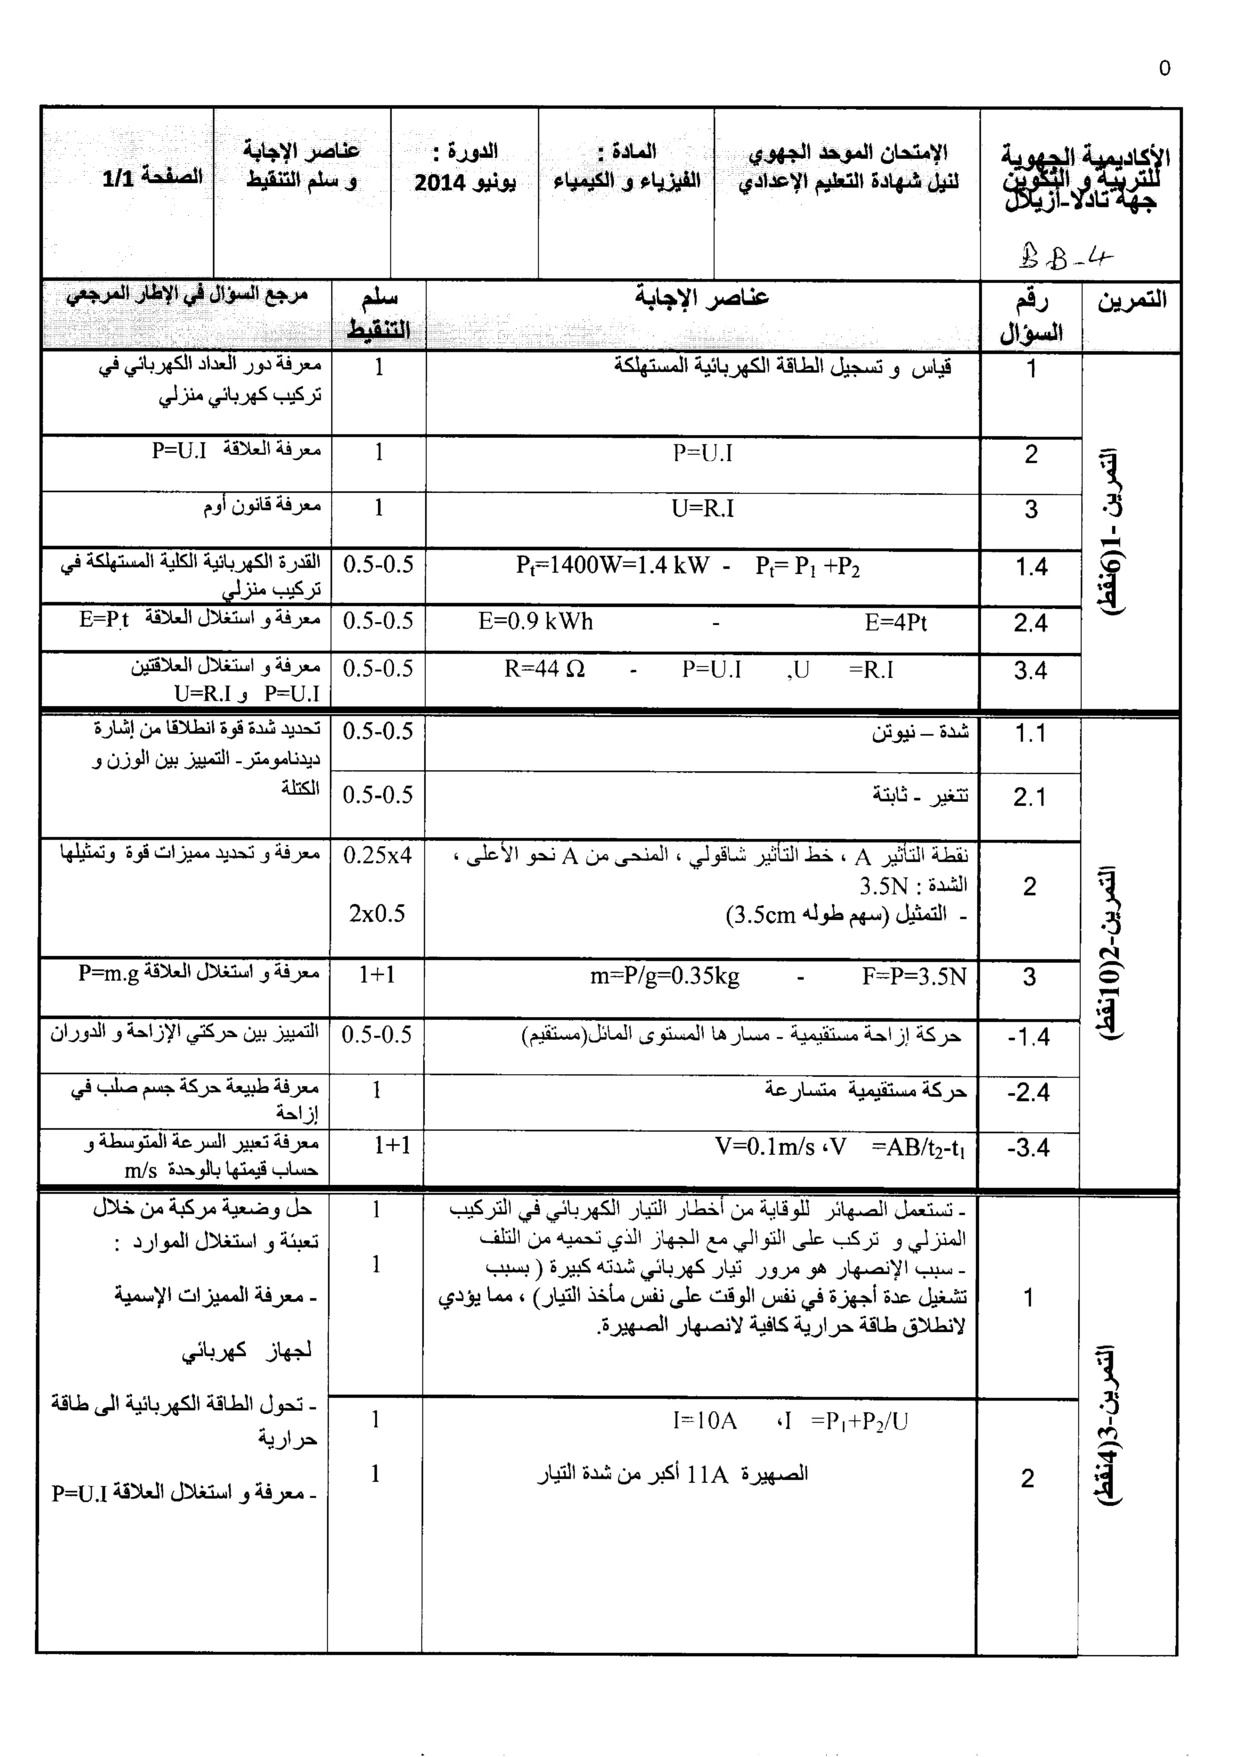 0
الأكاديمية الجهوية
للتربية و التكوين
جهة تادلا-أزيلال
BB-4
الإمتحان الموحد الجهوي
لنيل شهادة التعليم الإعدادي
المادة :
الفيزياء و الكيمياء
الدورة :
يونيو 2014
عناصر الإجابة
و سلم التنقيط
الصفحة 1/1
التمرين
رقم
السؤال
عناصر الإجابة
سلم
التنقيط
مرجع السؤال في الإطار المرجعي
التمرين -1(6نقط)
1
قياس و تسجيل الطاقة الكهربائية المستهلكة
1
معرفة دور العداد الكهربائي في
تركيب كهربائي منزلي
2
P=U.I
1
معرفة العلاقة P=U.I
3
U=R.I
1
معرفة قانون أوم
1.4
Pt=1400W=1.4 kW - Pt= P1 +P2
0.5-0.5
القدرة الكهربائية الكلية المستهلكة في
تركيب منزلي
2.4
E=0.9 kWh - E=4Pt
0.5-0.5
معرفة و استغلال العلاقة E=P.t
3.4
R=44 Ω - P=U.I ,U =R.I
0.5-0.5
معرفة و استغلال العلاقتين
P=U.I و U=R.I
التمرين-2(10نقط)
1.1
شدة – نيوتن
0.5-0.5
تحديد شدة قوة انطلاقا من إشارة
ديدنامومتر- التمييز بين الوزن و
الكتلة
2.1
تتغير - ثابتة
0.5-0.5
2
نقطة التأثير A ، خط التأثير شاقولي ، المنحى من A نحو الأعلى ،
الشدة : 3.5N
- التمثيل (سهم طوله 3.5cm)
0.25x4
2x0.5
معرفة و تحديد مميزات قوة وتمثيلها
3
m=P/g=0.35kg - F=P=3.5N
1+1
معرفة و استغلال العلاقة P=m.g
1.4-
حركة إزاحة مستقيمية - مسارها المستوى المائل(مستقيم)
0.5-0.5
التمييز بين حركتي الإزاحة و الدوران
2.4-
حركة مستقيمية متسارعة
1
معرفة طبيعة حركة جسم صلب في
إزاحة
3.4-
V=0.1m/s ،V =AB/t2-t1
1+1
معرفة تعبير السرعة المتوسطة و
حساب قيمتها بالوحدة m/s
التمرين-3(4نقط)
1
- تستعمل الصهائر للوقاية من أخطار التيار الكهربائي في التركيب
المنزلي و تركب على التوالي مع الجهاز الذي تحميه من التلف
- سبب الإنصهار هو مرور تيار كهربائي شدته كبيرة ( بسبب
تشغيل عدة أجهزة في نفس الوقت على نفس مأخذ التيار) ، مما يؤدي
لانطلاق طاقة حرارية كافية لانصهار الصهيرة.
1
1
حل وضعية مركبة من خلال
تعبئة و استغلال الموارد :
- معرفة المميزات الإسمية
لجهاز كهربائي
- تحول الطاقة الكهربائية الى طاقة
حرارية
- معرفة و استغلال العلاقة P=U.I
2
I=10A ،I =P1+P2/U
الصهيرة 11A أكبر من شدة التيار
1
1